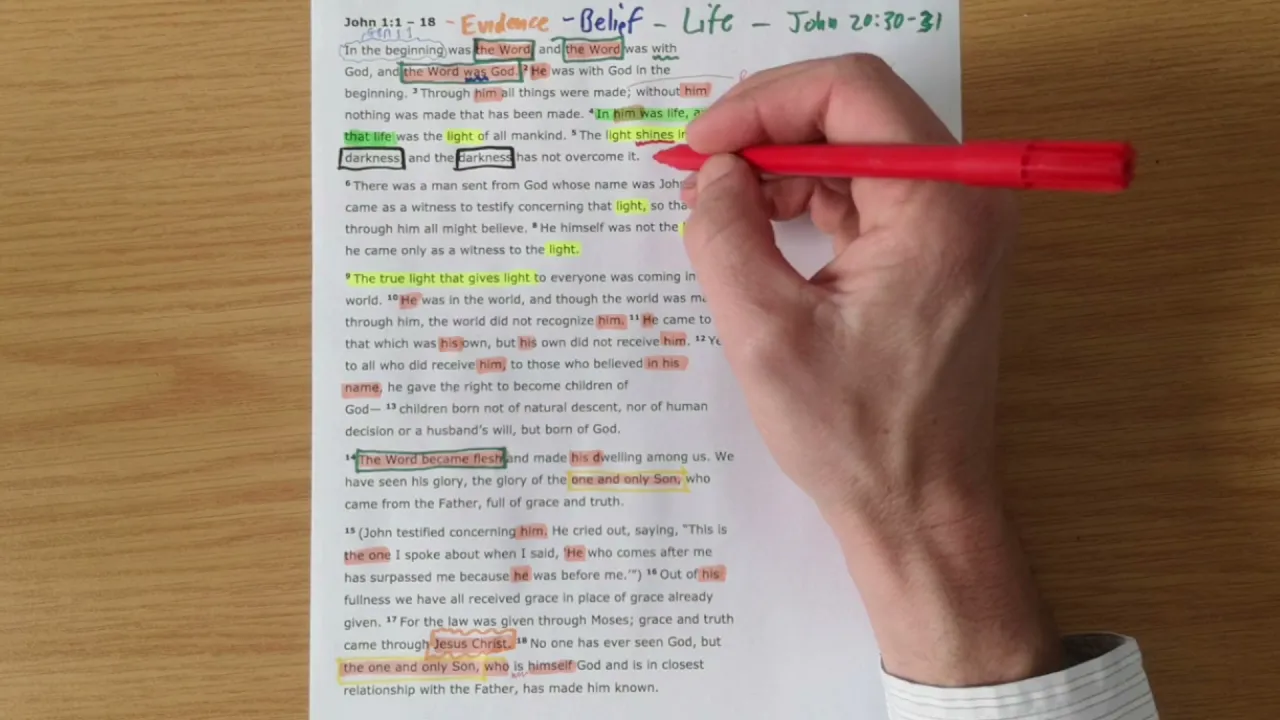 John 1:1 – 18 - Evidence - Belief - Life - John 20:30-31
Gen 1:1
In the beginning was the Word, and the Word was with
God, and the Word was God. 2 He was with God in the
beginning. 3 Through him all things were made; without him
nothing was made that has been made. 4 In him was life,
that life was the light of all mankind. 5 The light shines in
darkness, and the darkness has not overcome it.
6 There was a man sent from God whose name was
came as a witness to testify concerning that light, so
through him all might believe. 8 He himself was not the
he came only as a witness to the light.
9 The true light that gives light to everyone was coming in
world. 10 He was in the world, and though the world was
through him, the world did not recognize him. 11 He came to
that which was his own, but his own did not receive him. 12
to all who did receive him, to those who believed in his
name, he gave the right to become children of
God— 13 children born not of natural descent, nor of human
decision or a husband's will, but born of God.
14 The Word became flesh and made his dwelling among us. We
have seen his glory, the glory of the one and only Son, who
came from the Father, full of grace and truth.
15 (John testified concerning him. He cried out, saying, "This is
the one I spoke about when I said, 'He who comes after me
has surpassed me because he was before me.'") 16 Out of his
fullness we have all received grace in place of grace already
given. 17 For the law was given through Moses; grace and truth
came through Jesus Christ. 18 No one has ever seen God, but
the one and only Son, who is himself God and is in closest
relationship with the Father, has made him known.